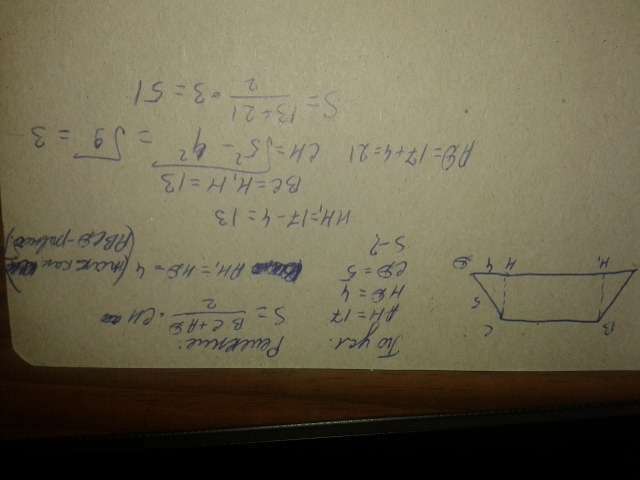 По усл.:
AH = 17
HD = 4
CD = 5
S - ?
B
C
H₁
H
4
D
5
Решение:
S = (BC + AD)/2 · CH
AH₁ = HD = 4 (так как ABCD - равноб)
HH₁ = 17 - 4 = 13
BC = H₁H = 13
AD = 17 + 4 = 21
CH = √(5² - 4²) = √9 = 3
S = (13 + 21)/2 · 3 = 51